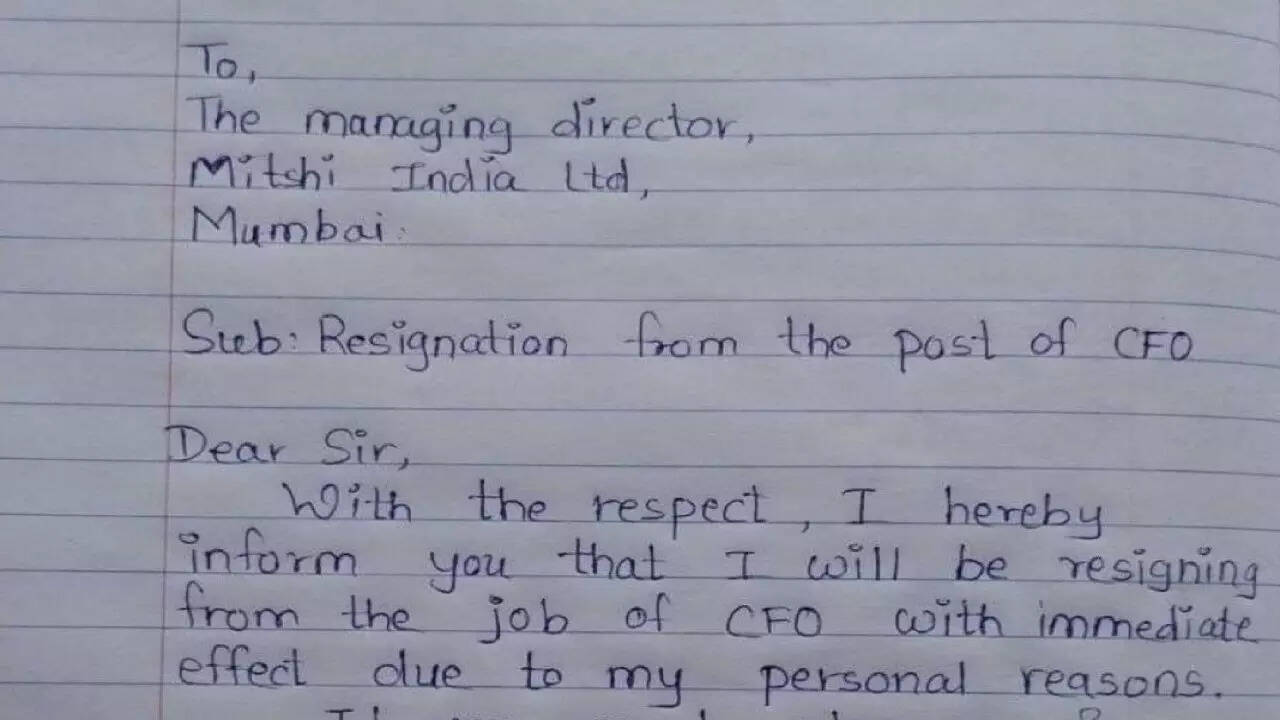 To,
The managing director,
Mitshi India Ltd,
Mumbai.
Sub: Resignation from the post of CFO
Dear Sir,
With the respect, I hereby
inform you that I will be resigning
from the job of CFO with immediate
effect due to my personal reasons.